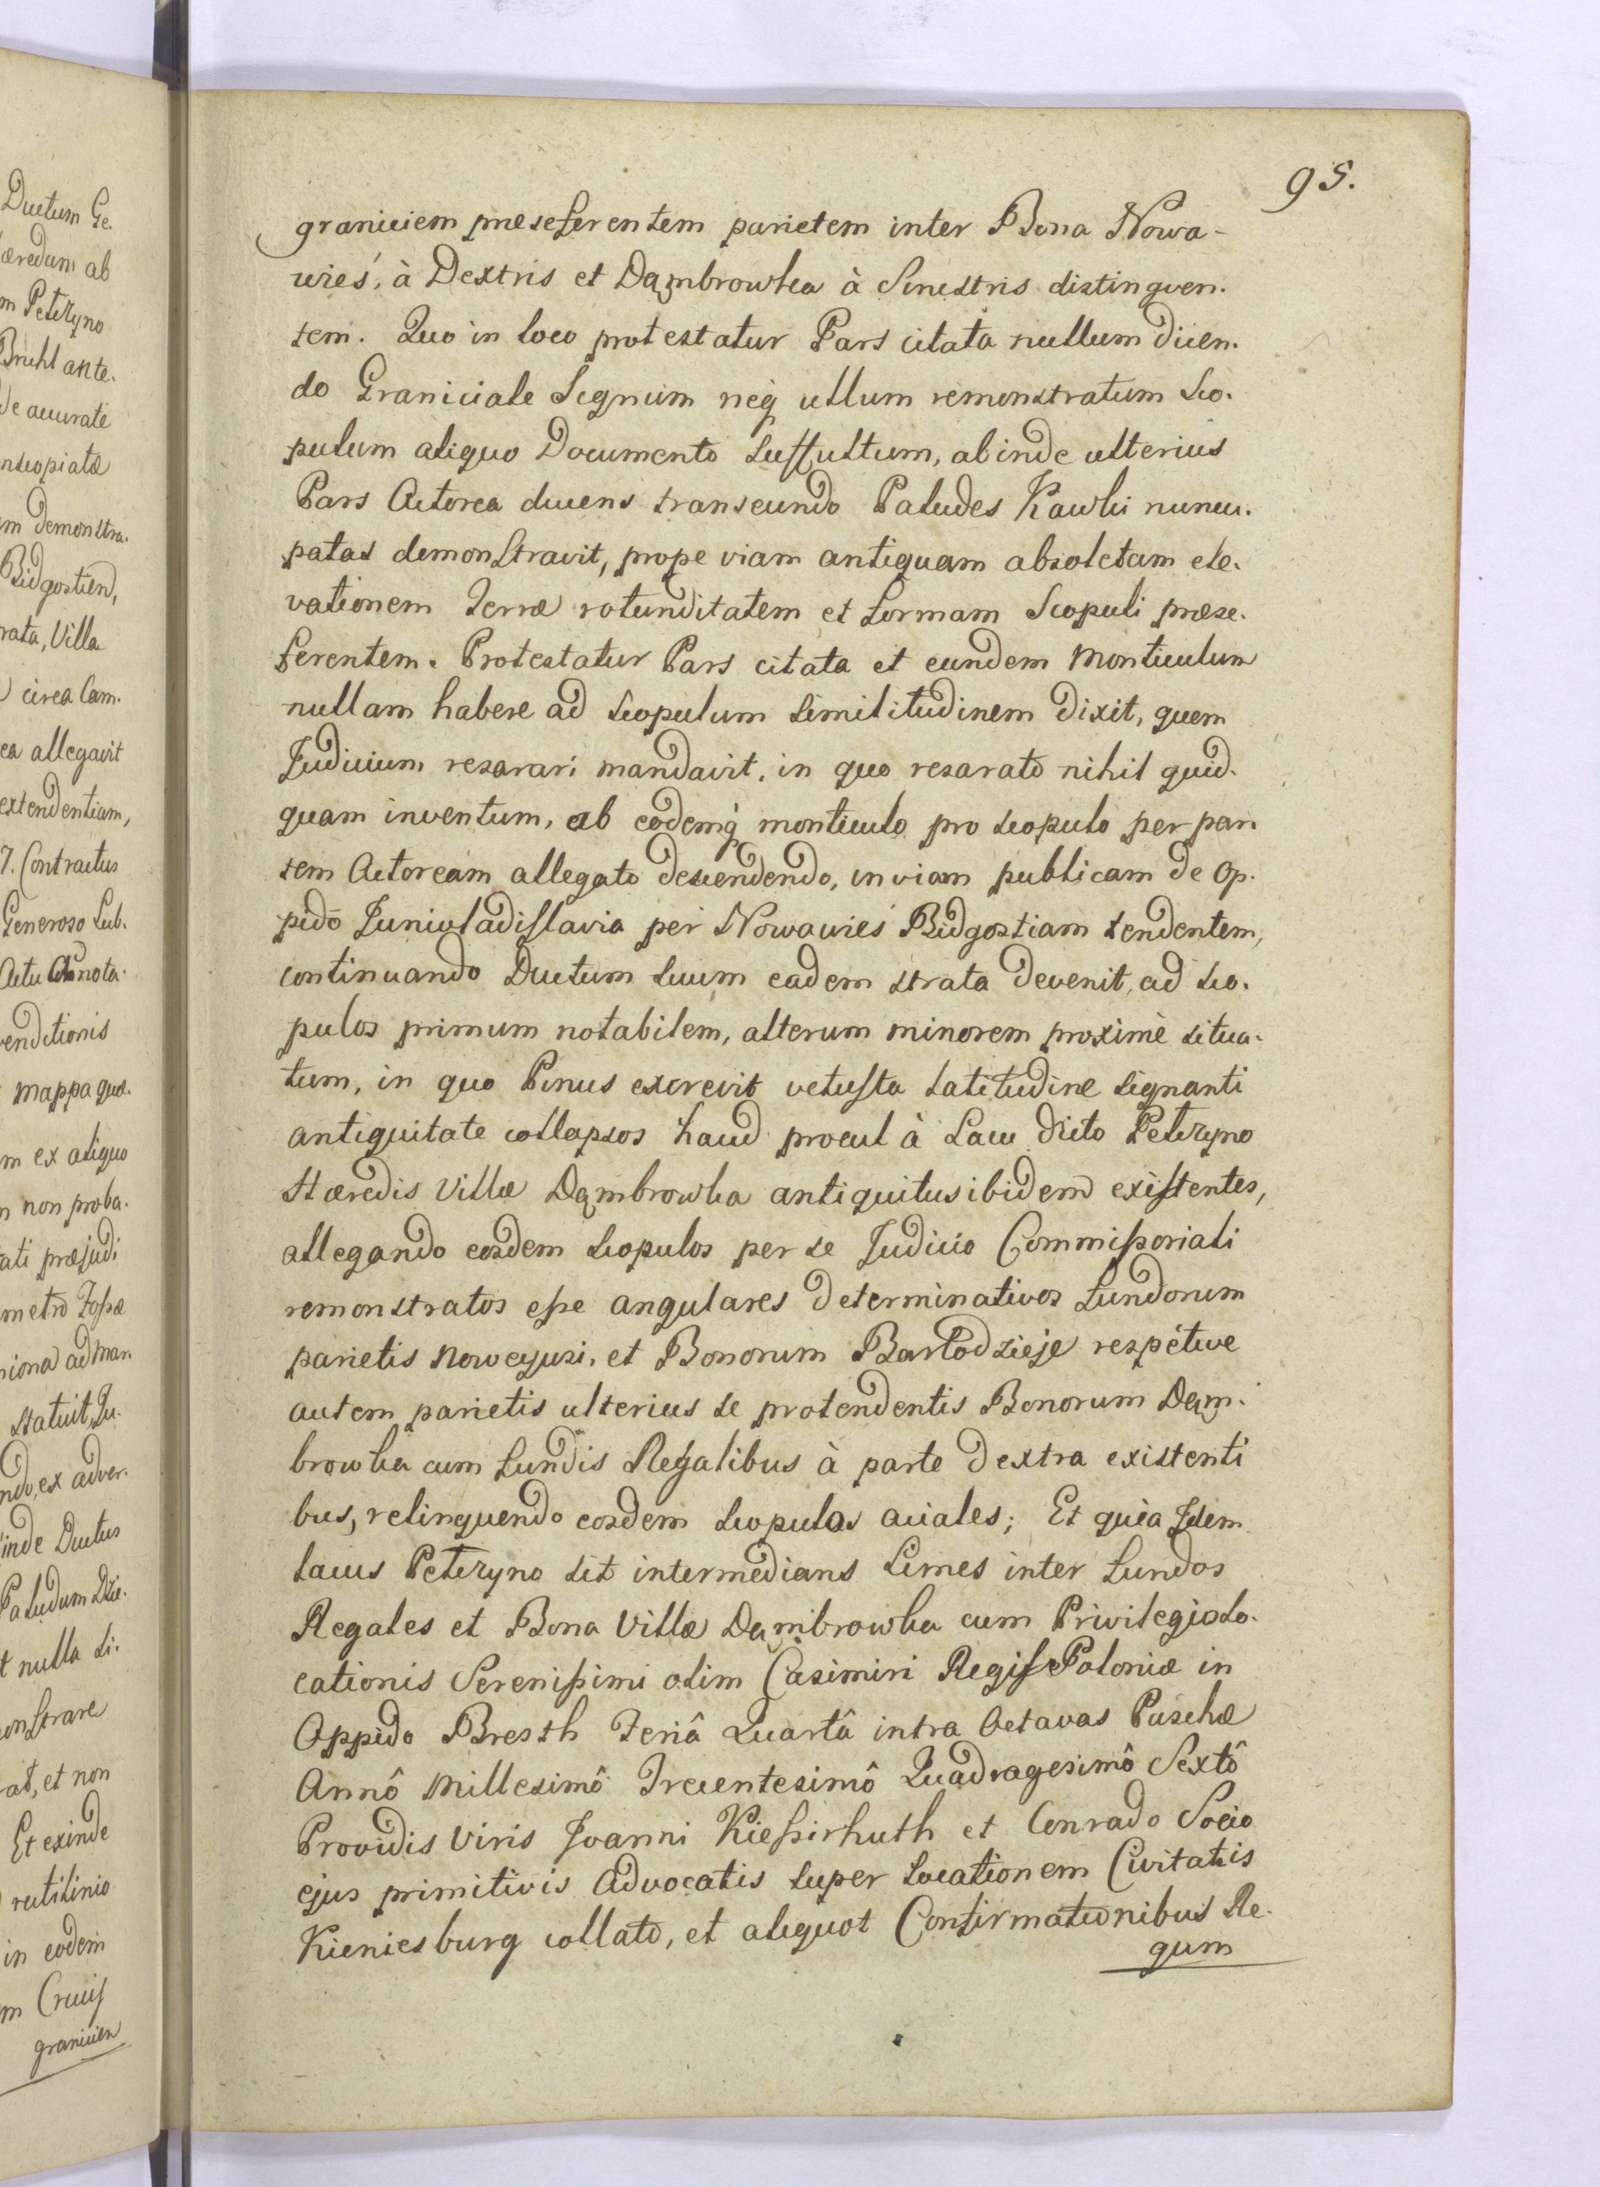 Ductum Ge.
æredum ab
m Peterzyno
Bruhl ante.
de accurate
nscopiatæ
m demonstra.
Bidgostien,
rata, Villa
circa Cam.
ea allegavit
extendentiam,
7. Contractus
Generoso Sub.
Actu Connota.
venditionis
mappa quæ.
m ex aliquo
m non proba.
tati præjudi
metro Fossæ
niona ad man
statuit, Ju.
ndo, ex adver.
inde Ductus
Paludum Dzie.
t nulla si.
onstrare
rat, et non
Et exinde
rectilinio
in eodem
m Crucis
graniciem
95.
graniciem præseferentem parietem inter Bona Nowa-
wieś, à Dextris et Dąmbrowka à Sinistris distinguen.
tem. Quo in loco protestatur Pars citata nullum dicen.
do Graniciale Signum neq ullum remonstratum Sco.
pulum aliquo Documento suffultum, abinde ulterius
Pars Actorea ducens transeundo Paludes Kawki nuncu.
patas demonstravit, prope viam antiquam absoletam ele.
vationem Terræ rotunditatem et formam Scopuli præse.
ferentem. Protestatur Pars citata et eundem Monticulum
nullam habere ad scopulum similitudinem dixit, quem
Judicium resarari mandavit, in quo resarato nihil quid.
quam inventum, ab eodemq monticulo pro scopulo per par
tem Actoream allegato descendendo, in viam publicam de Op.
pido Juniwladislavia per Nowawieś Bidgostiam tendentem,
continuando Ductum suum eadem strata devenit, ad sco.
pulos primum notabilem, alterum minorem proximè situa.
tum, in quo Pinus excrevit vetusta latitudine signanti
antiquitate collapsos haud procul à Lacu dicto Peterzyno
Hæredis Villæ Dąmbrowka antiquitus ibidem existentes,
allegando eosdem scopulos per se Judicio Commissoriali
remonstratos esse angulares determinativos fundorum
parietis Noweyusi, et Bonorum Bartodzieje respétive
autem parietis ulterius se protendentis Bonorum Dąm.
browka cum fundis Regalibus à parte dextra existenti
bus, relinquendo eosdem scopulos aciales; Et quia Idem
lacus Peterzyno sit intermedians Limes inter fundos
Regales et Bona Villæ Dąmbrowka cum Privilegio Lo.
cationis Serenissimi olim Casimiri Regis Poloniæ in
Oppido Bresth Feriâ Quartâ intra Octavas Paschæ
Annô Millesimô Trecentesimô Quadragesimô Sextô
Providis Viris Joanni Kiessirhuth et Conrado Socio
ejus primitivis Advocatis super Locationem Civitatis
Kieniesburg collato, et aliquot Confirmationibus Re.
gum